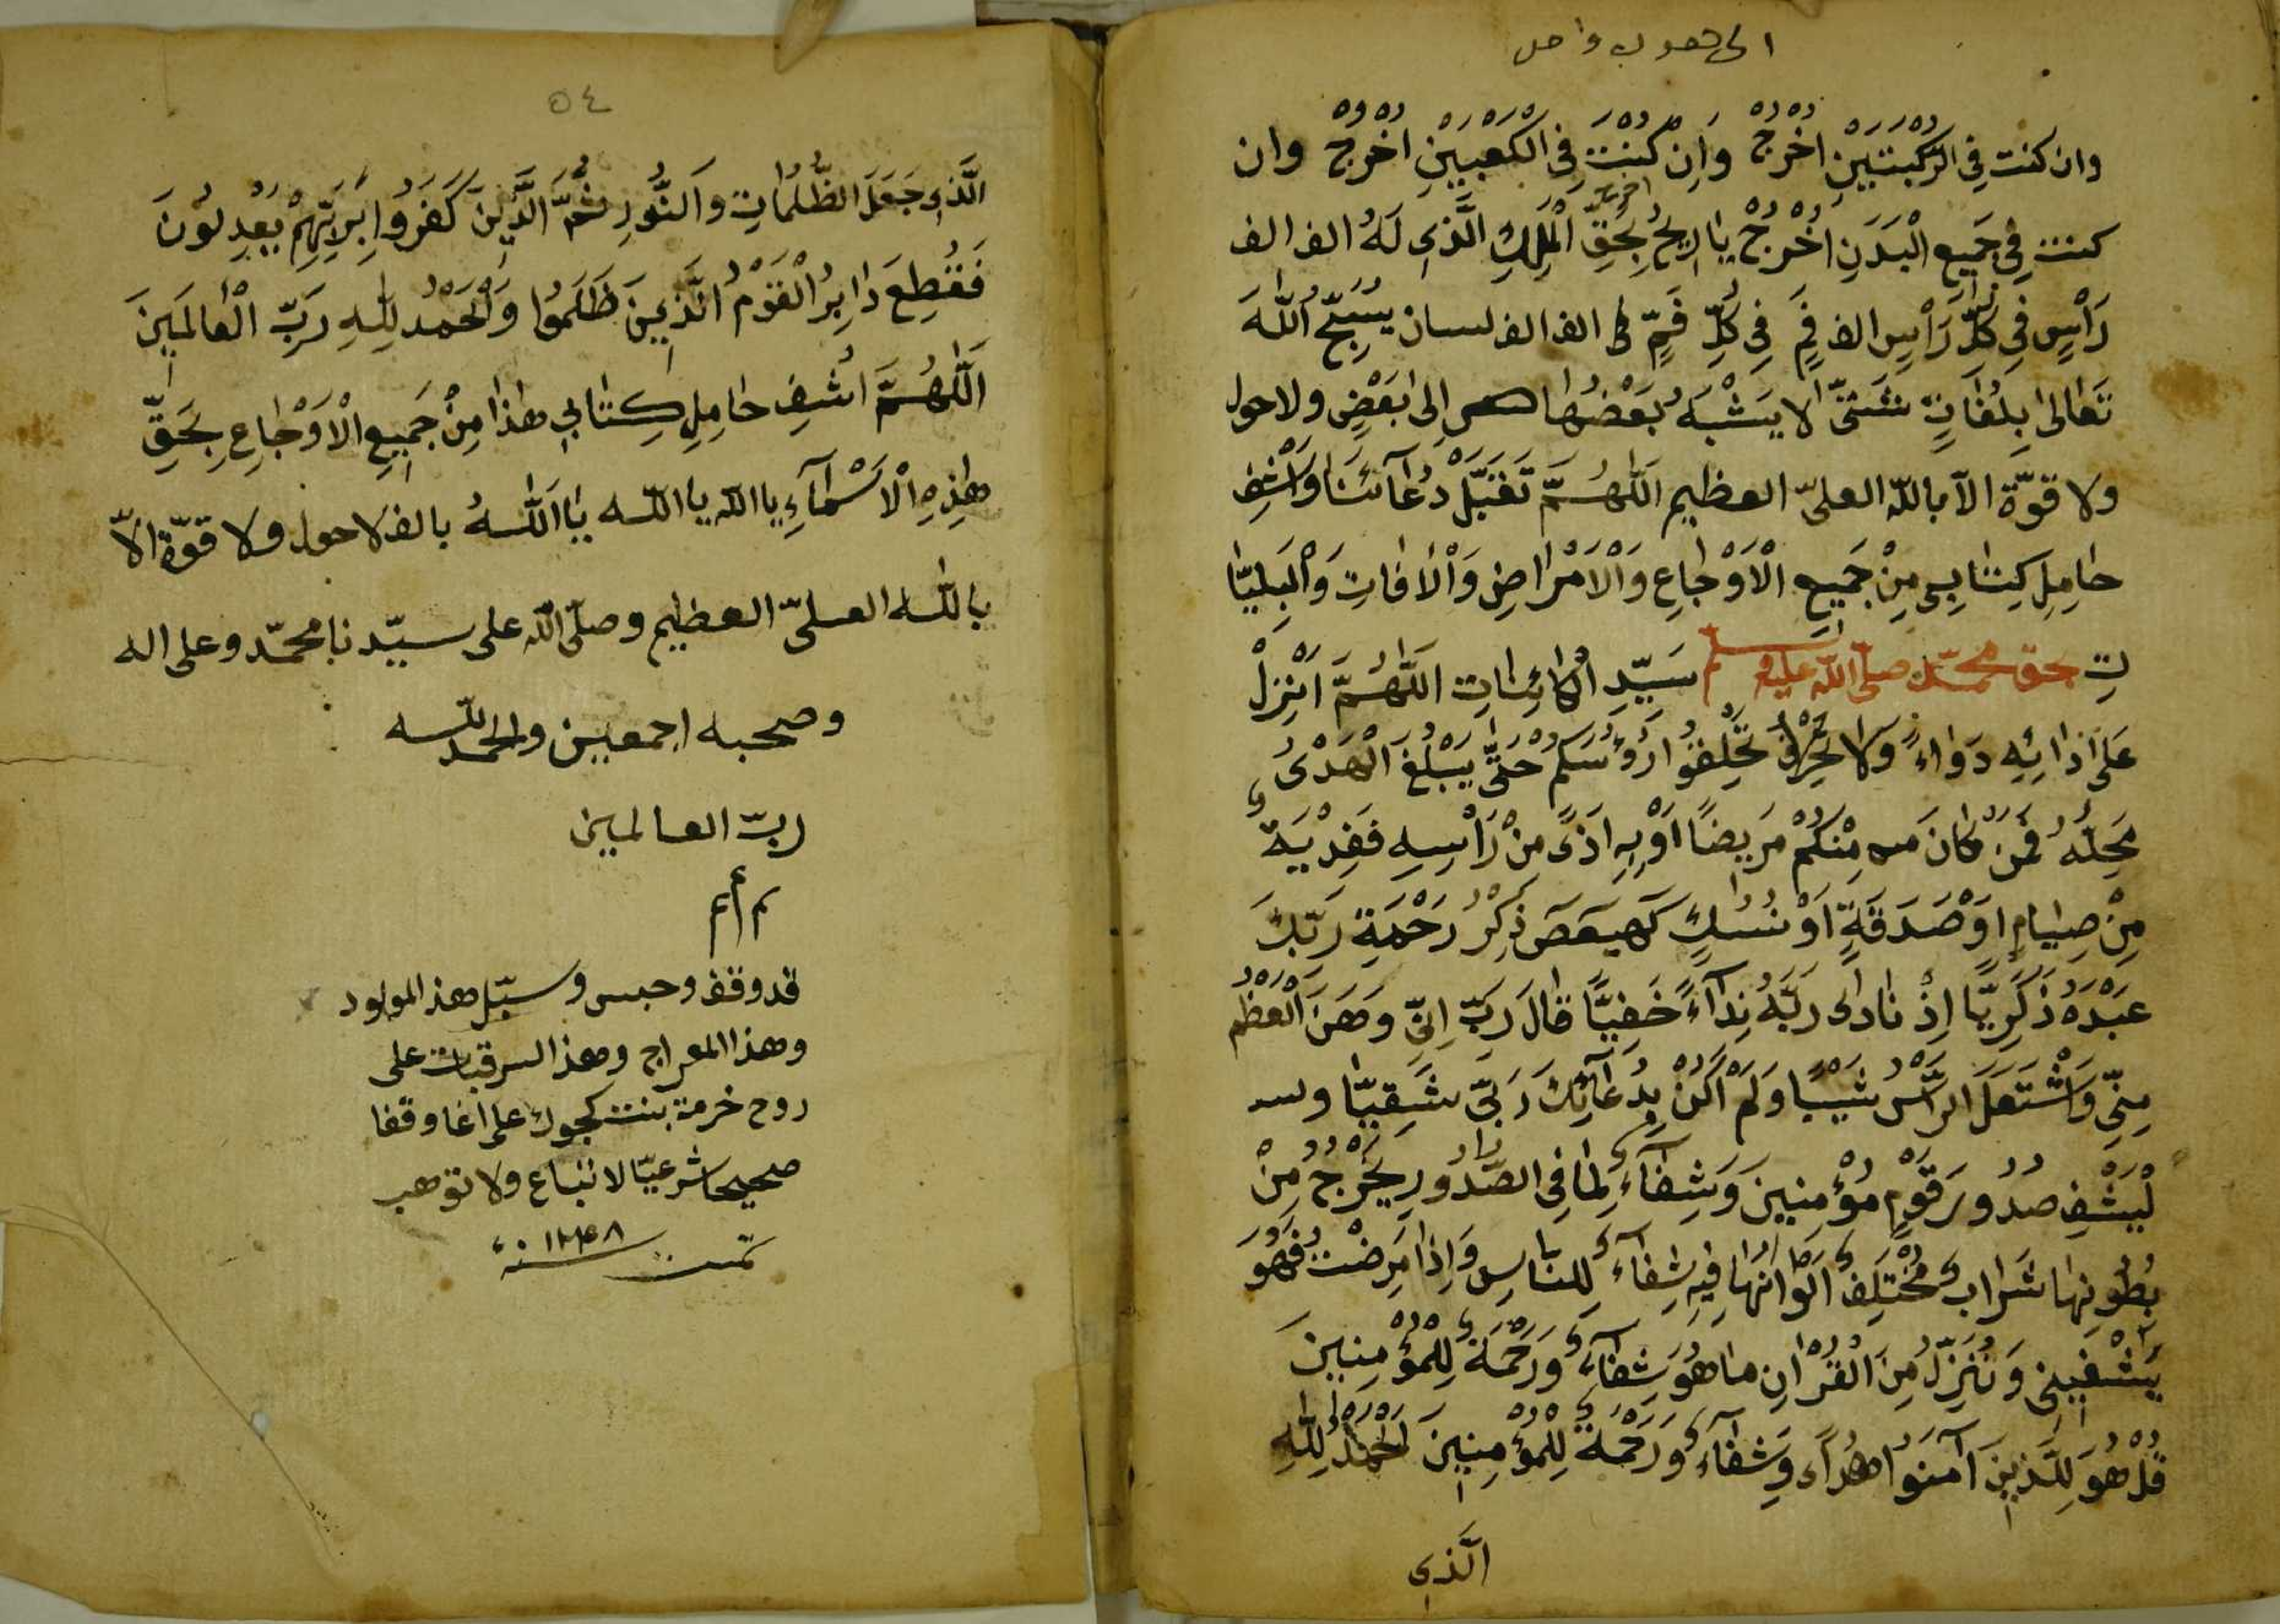 وان كنت فِي الرُّكْبَتَيْنِ اُخْرُجْ وَاِنْ كُنْتَ فِى الْكَعْبَيْنِ اُخْرُجْ وان
كنت فِي جَمِيعِ الْبَدَنِ اُخْرُجْ يَا رِيحُ بِحَقِّ الْمَلِكِ الَّذِى لَهُ الف الف
رَاْسٍ فِي كُلِّ رَاْسٍ الف فَمٍ فِي كُلِّ فَمٍّ الف الف لسان يُسَبِّحُ اللّٰهَ
تَعَالىٰ بِلُغَاتٍ شَتىّٰ لا يَشْبَهُ بَعْضُهَا اِلىٰ بَعْضٍ ولا حول
ولا قوّة الاّ باللّه العلىّ العظيم اَللّٰهُمَّ تَقَبَّلْ دُعَآئَنَا وَاشْفِ
حَامِلِ كِتَابِي مِنْ جَمِيعِ الْاَوْجَاعِ وَالْاَمْرَاضِ وَالْاٰفَاتِ وَالْبَلِيَّا
تِ بحق محمّد صلّى اللّه عليه وسلم سَيِّدِ الْكَائِنَاتِ اَللّٰهُمَّ اَنْزِلْ
عَلىَ اَذَائِهِ دَوَاءً وَلَا تَحْلِقُوا رُؤُسَكُمْ حَتّىٰ يَبْلُغَ الْهَدْىُ
مَحِلَّهُ فَمَنْ كَانَ مِنْكُمْ مَرِيضًا اَوْ بِهِ اَذًى مِنْ رَاْسِهِ فَفِدْيَةٌ
مِنْ صِيَامٍ اَوْ صَدَقَةٍ اَوْ نُسُكٍ كٓهٰيٰعٓصٓ ذِكْرُ رَحْمَةِ رَبِّكَ
عَبْدَهُ زَكَرِيَّا اِذْ نَادٰى رَبَّهُ نِدَآءً خَفِيًّا قَالَ رَبِّ اِنِّى وَهَنَ الْعَظْمُ
مِنِّى وَاشْتَعَلَ الرَّاْسُ شَيْبًا وَلَمْ اَكُنْ بِدُعَآئِكَ رَبِّ شَقِيًّا
لْيَشْفِ صُدُورَ قَوْمٍ مُؤْمِنِينَ وَشِفَآءٌ لِمَا فِى الصُّدُورِ يَخْرُجُ مِنْ
بُطُونِهَا شَرَابٌ مُخْتَلِفٌ اَلْوَانُهَا فِيهِ شِفَآءٌ لِلنَّاسِ وَاِذَا مَرِضْتُ فَهُوَ
يَشْفِينِ وَنُنَزِّلُ مِنَ الْقُرْاٰنِ مَا هُوَ شِفَآءٌ وَرَحْمَةٌ لِلْمُؤْمِنِينَ
قُلْ هُوَ لِلَّذِينَ آمَنُوا هُدًا وَشِفَآءٌ وَرَحْمَةٌ لِلْمُؤْمِنِينَ اَلْحَمْدُ لِلّٰهِ
الَّذِى
٥٤
الَّذِى جَعَلَ الظُّلُمَاتِ وَالنُّورِ ثُمَّ الَّذِينَ كَفَرُوا بِرَبِّهِمْ يَعْدِلُونَ
فَقُطِعَ دَابِرُ الْقَوْمُ الَّذِينَ ظَلَمُوا وَالْحَمْدُ لِلّٰهِ رَبِّ الْعَالَمِينَ
اَللّٰهُمَّ اشْفِ حَامِلِ كِتَابِي هٰذَا مِنْ جَمِيعِ الْاَوْجَاعِ بِحَقِّ
هٰذِهِ الْاَسْمَآءِ يا اللّه يا اللّه يَا اَللّٰهُ بالف لا حول ولا قوّة الاّ
باللّه العلىّ العظيم وصلّى اللّه على سيّدنا محمّد وعلى اله
وصحبه اجمعين والحمد للّه
ربّ العالمين
قد وقف وحبس وسبّل هذ المولود
وهذا المعراج وهذ السرقبات على
روح خرمة بنت كجوك على اغا وقفا
صحيحا شرعيّا لا تباع ولا توهب
تمت سنة ١٢٤٨